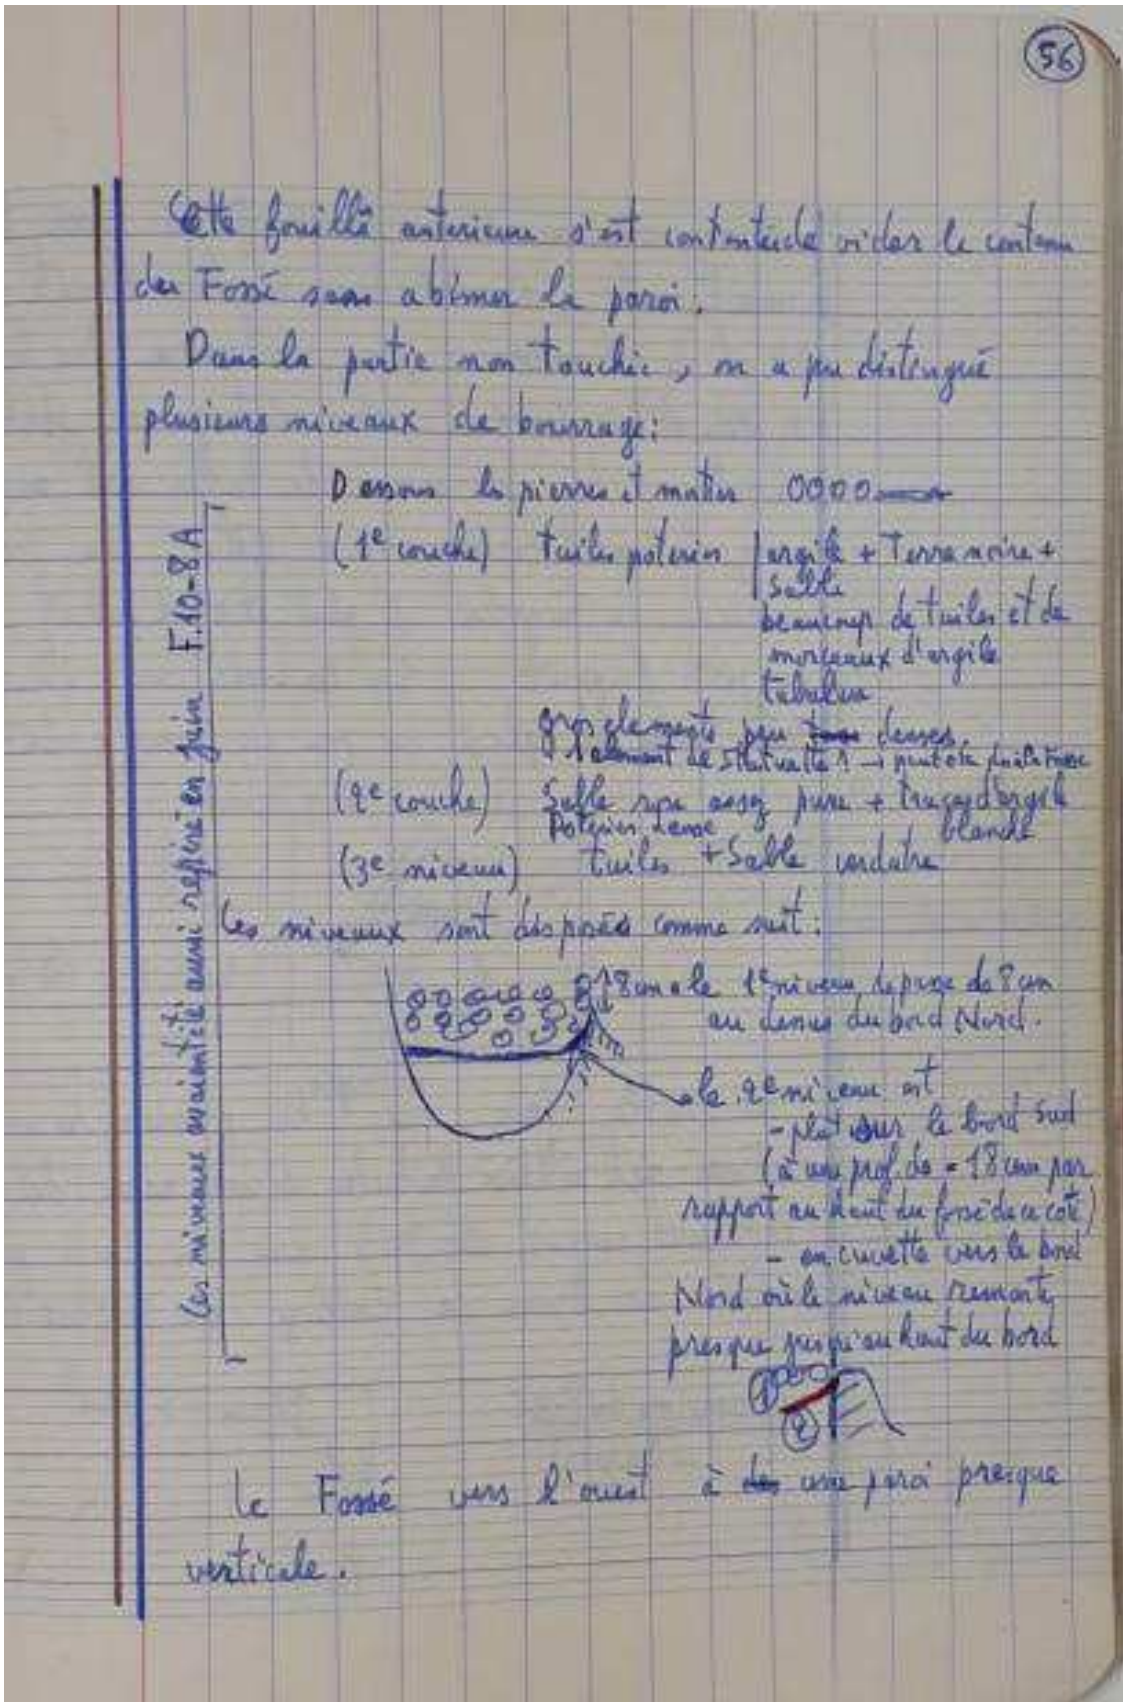 56
Cette fouille anterieure s'est contentée de vider le contenu
du Fossé sans abîmer la paroi.
Dans la partie non touchée, on a pu distingué
plusieurs niveaux de bourrage:
Dessous les pierres et 0000
(1e couche) tuiles poteries argile + Terre noire +
Sable
beaucoup de tuiles et de
morceaux d'argile
gros elements peu denses.
1 element de Statuette ? → peut être
(2e couche) Sable assez pure + traces d'argile
blanche
Poteries dense
(3e niveau) tuiles + Sable verdatre
Les niveaux sont disposés comme suit:
8 cm le 1e niveau depasse de 8 cm
au dessus du bord Nord.
le 2e niveau est
- plat sur le bord Sud
(à une prof. de - 18 cm par
rapport au haut du fossé de ce coté)
- en cuvette vers le bord
Nord où le niveau remonte
presque jusqu'au haut du bord
1
2
Le Fossé vers l'ouest à une paroi presque
verticale.
Ces niveaux avaient été aussi repéré en juin F.10-8A